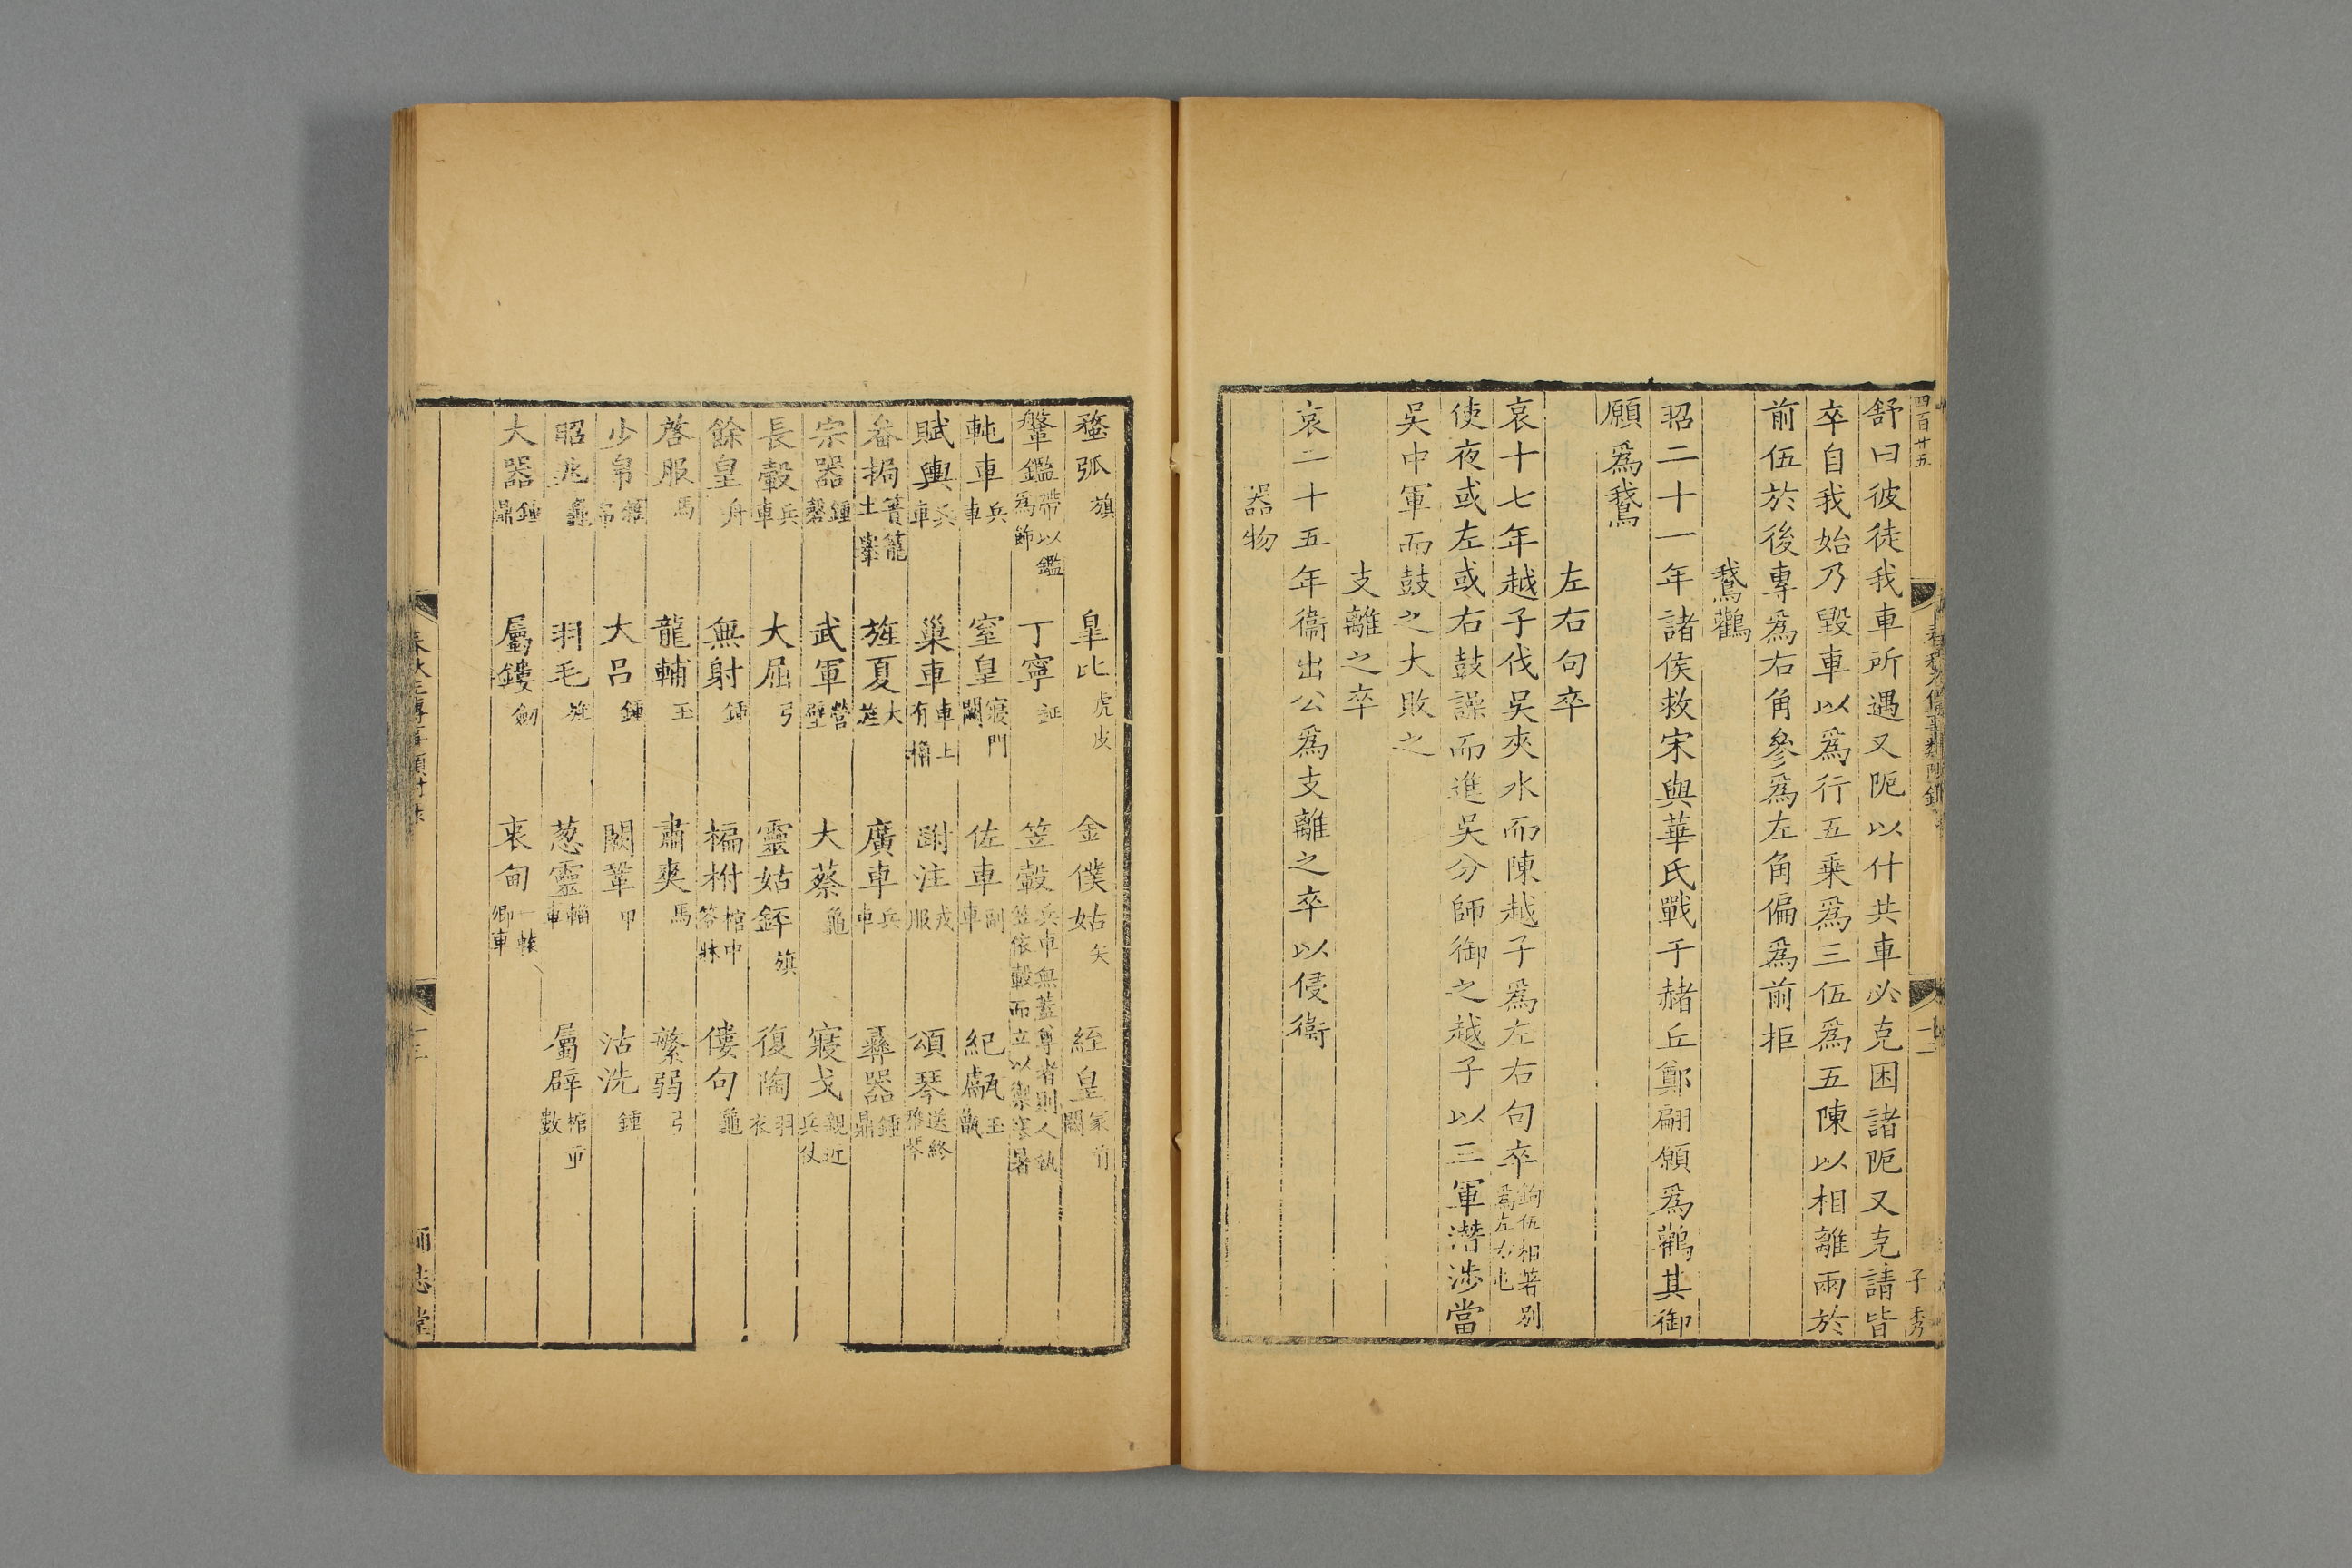 四百廿五
子秀
舒曰彼徒我車所遇又阨以什共車必克困諸阨又克請皆
卒自我始乃毀車以爲行五乗爲三伍爲五陳以相離兩於
前伍於後專爲右角參爲左角偏爲前拒
鵞鸛
昭二十一年諸侯救宋與華氏戰于赭丘鄭翩願爲鸛其御
願爲鵞
左右句卒
哀十七年越子伐吳吳夾水而陳越子爲左右句卒鉤伍相著別爲左右屯
使夜或左或右鼓譟而進吳分師御之越子以三軍潛涉當
吳中軍而鼓之大敗之
支離之卒
哀二十五年衞出公爲支離之卒以侵衞
器物
蝥弧旗 皐比虎皮 金僕姑矢 絰皇冢前闕
鞶鑑帶以鑑爲飾 丁寧鉦 笠轂兵車無蓋尊者則人執笠依轂而立以禦寒暑
軘車兵車 窒皇寢門闕 佐車副車 紀甗玉甑
賦輿兵車 巢車車上有櫓 跗注戎服 頌琴送終雅琴
畚挶簣籠土轝 旌夏大旌 廣車兵車 彝器鍾鼎
宗器鍾磬 武軍營壁 大蔡龜 寢戈親近兵仗
長轂兵車 大屈弓 靈姑銔旗 復陶羽衣
餘皇舟 無射鍾 楄柎棺中笭牀 僂句龜
啓服馬 龍輔玉 肅爽馬 繁弱弓
少帛雜帛 大呂鍾 闕鞏甲 沽洗鍾
昭兆龜 羽毛旌 葱靈輜車 屬辟棺重數
大器鍾鼎 屬鏤劒 衷甸一轅卿車
春秋左傳事類附錄
十三